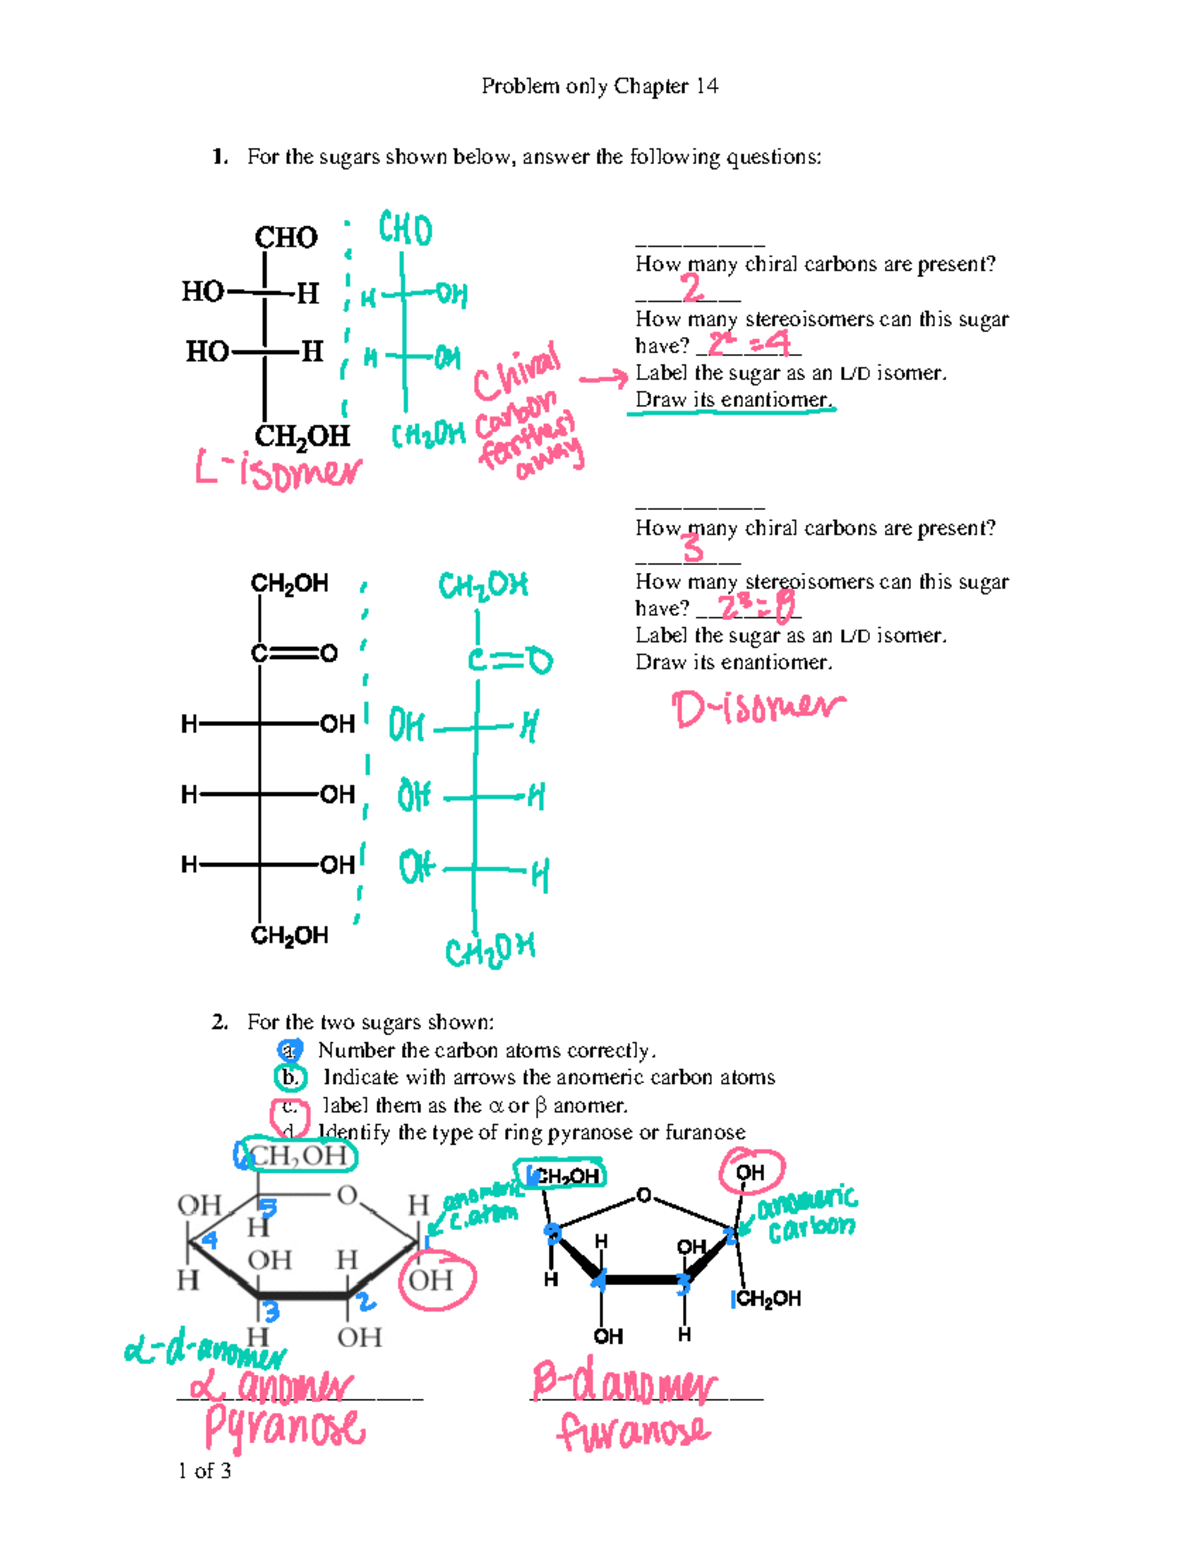 Problem only Chapter 14
1. For the sugars shown below, answer the following questions:
CHO
HO H
HO H
CH₂OH
L-isomer
CHO
H OH
H OH
CH₂OH
Chiral
carbon
farthest
away
___________
How many chiral carbons are present?
2
How many stereoisomers can this sugar
have? 2² = 4
Label the sugar as an L/D isomer.
Draw its enantiomer.
___________
How many chiral carbons are present?
3
How many stereoisomers can this sugar
have? 2³ = 8
Label the sugar as an L/D isomer.
Draw its enantiomer.
D-isomer
CH₂OH
C O
H OH
H OH
H OH
CH₂OH
CH₂OH
C=O
OH H
OH H
OH H
CH₂OH
2. For the two sugars shown:
a. Number the carbon atoms correctly.
b. Indicate with arrows the anomeric carbon atoms
c. label them as the α or β anomer.
d. Identify the type of ring pyranose or furanose
6 CH₂OH
OH 5 O H
4 H 1
H OH H OH
3 2
H OH
anomeric
c. atom
α-d-anomer
α anomer
Pyranose
6 CH₂OH OH
O
5 H OH 2
H 4 3 1 CH₂OH
OH H
anomeric
carbon
β-d anomer
furanose
1 of 3